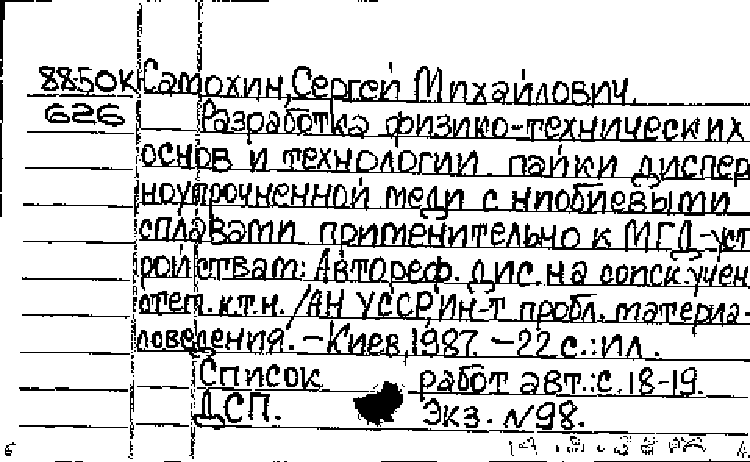 8850К Самохин, Сергей Михайлович.
626 Разработка физико-технических
основ и технологии пайки диспер
ноупрочненной меди с ниобиевыми
сплавами применительно к МГД-уст
ройствам: Автореф. дис. на соиск. учен.
степ. к.т.н. /АН УССР, Ин-т пробл. материа-
ловедения. – Киев, 1987. – 22 с.: ил.
Список работ авт.: с. 18-19.
ДСП. Экз. N98.